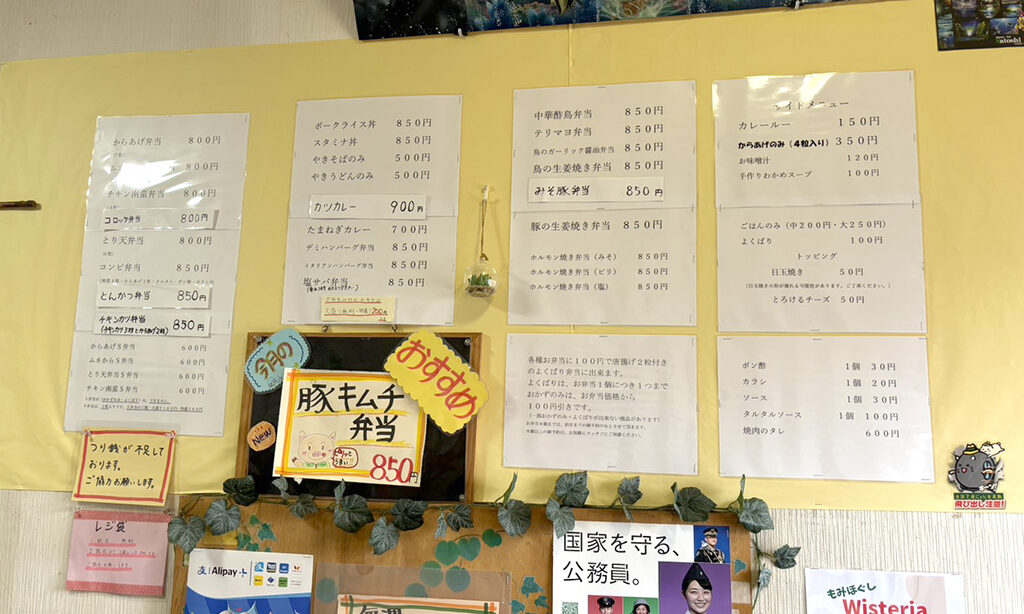 からあげ弁当 800円
800円
チキン南蛮弁当 800円
コロッケ弁当 800円
とり天弁当 800円
コンビ弁当 850円
とんかつ弁当 850円
チキンカツ弁当 850円
(チキンカツ3枚とからあげ2粒)
からあげS弁当 600円
ムネからS弁当 600円
とり天弁当S弁当 600円
チキン南蛮S弁当 600円
ポークライス丼 850円
スタミナ丼 850円
やきそばのみ 500円
やきうどんのみ 500円
カツカレー 900円
たまねぎカレー 700円
デミハンバーグ弁当 850円
イタリアンハンバーグ弁当 850円
塩サバ弁当 850円
中華酢鳥弁当 850円
テリマヨ弁当 850円
鳥のガーリック醤油弁当 850円
鳥の生姜焼き弁当 850円
みそ豚弁当 850円
豚の生姜焼き弁当 850円
ホルモン焼き弁当(みそ) 850円
ホルモン焼き弁当(ピリ) 850円
ホルモン焼き弁当(塩) 850円
各種お弁当に100円で唐揚げ2粒付き
のよくばり弁当に出来ます。
よくばりは、お弁当1個につき1つまで
おかずのみは、お弁当価格から
100円引きです。
(一部おかずのみ・よくばりが出来ない商品があります)
サイドメニュー
カレールー 150円
からあげのみ(4粒入り) 350円
お味噌汁 120円
手作りわかめスープ 100円
ごはんのみ(中200円・大250円)
よくばり 100円
トッピング
目玉焼き 50円
(目玉焼きの形が壊れる可能性があります。ご了承ください。)
とろけるチーズ 50円
ポン酢 1個 30円
カラシ 1個 20円
ソース 1個 30円
タルタルソース 1個 100円
焼肉のタレ 600円
今月の
おすすめ
New
豚キムチ
弁当
850円
つり銭が不足して
おります。
ご協力お願いします。
レジ袋
Alipay+
国家を守る、
公務員。
もみほぐし
Wisteria
飛び出し注意!